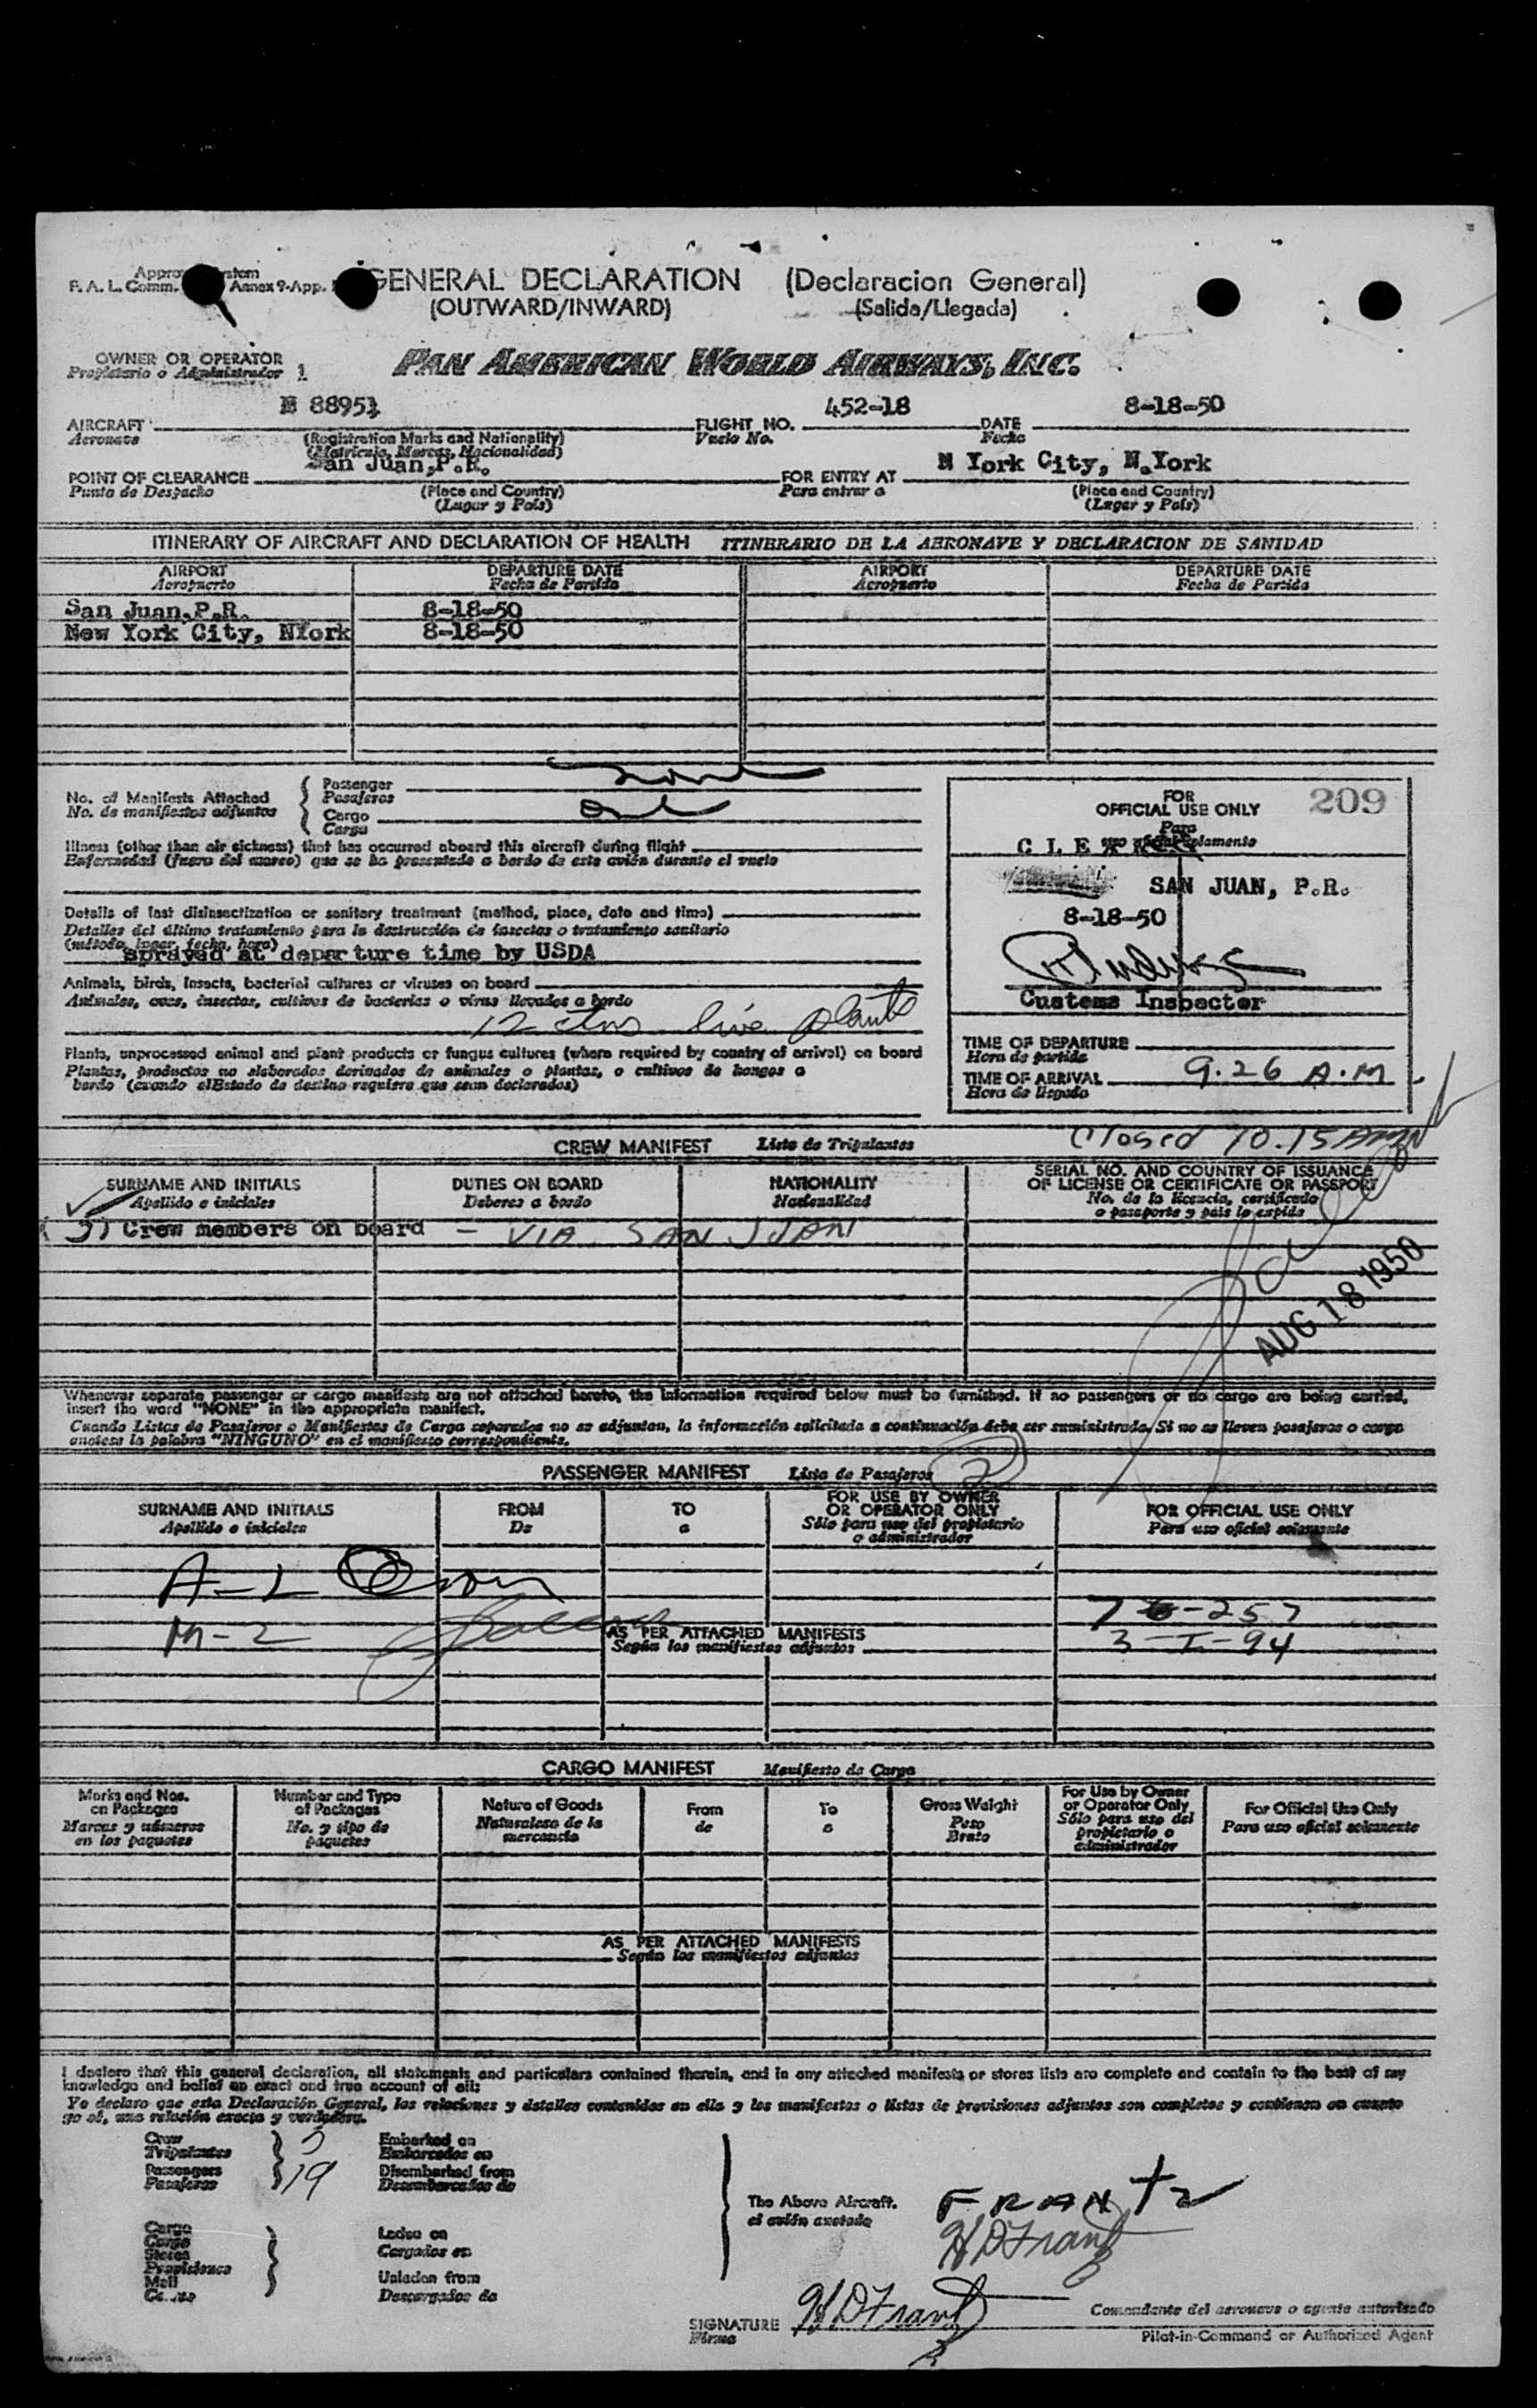 GENERAL DECLARATION (Declaracion General)
F. A. L. Comm. Annex 9-App.
(OUTWARD/INWARD) (Salida/Llegada)
OWNER OR OPERATOR PAN AMERICAN WORLD AIRWAYS, INC.
Propietario o Administrador
8895 452-18 8-18-50
AIRCRAFT FLIGHT NO. DATE
Aeronave Vuelo No. Fecha
(Registration Marks and Nationality)
(Matricula, Marcas, Nacionalidad)
San Juan,P.R. N York City, N.York
POINT OF CLEARANCE FOR ENTRY AT
Punto de Despacho (Place and Country) Para entrar a (Place and Country)
(Lugar y País) (Lugar y País)
ITINERARY OF AIRCRAFT AND DECLARATION OF HEALTH ITINERARIO DE LA AERONAVE Y DECLARACION DE SANIDAD
AIRPORT DEPARTURE DATE AIRPORT DEPARTURE DATE
Aeropuerto Fecha de Partida Aeropuerto Fecha de Partida
San Juan,P.R. 8-18-50
New York City, NYork 8-18-50
No. of Manifests Attached Passenger
No. de manifiestos adjuntos Pasajeros
Cargo
Carga
FOR
OFFICIAL USE ONLY 209
Para
uso oficial solamente
SAN JUAN, P.R.
8-18-50
Customs Inspector
TIME OF DEPARTURE
Hora de partida
TIME OF ARRIVAL 9.26 A.M
Hora de llegada
Illness (other than air sickness) that has occurred aboard this aircraft during flight
Enfermedad (fuera del mareo) que se ha presentado a bordo de este avión durante el vuelo
Details of last disinsectization or sanitary treatment (method, place, date and time)
Detalles del último tratamiento para la destrucción de insectos o tratamiento sanitario
(método, lugar, fecha, hora)
sprayed at departure time by USDA
Animals, birds, insects, bacterial cultures or viruses on board
Animales, aves, insectos, cultivos de bacterias o virus llevados a bordo
12 ctns live plants
Plants, unprocessed animal and plant products or fungus cultures (where required by country of arrival) on board
Plantas, productos no elaborados derivados de animales o plantas, o cultivos de hongos a
bordo (cuando el Estado de destino requiere que sean declarados)
Closed 10.15
CREW MANIFEST Lista de Tripulantes
SURNAME AND INITIALS DUTIES ON BOARD NATIONALITY SERIAL NO. AND COUNTRY OF ISSUANCE
OF LICENSE OR CERTIFICATE OR PASSPORT
Apellido e iniciales Deberes a bordo Nacionalidad No. de la licencia, certificado
o pasaporte y país lo expide
Crew members on board - VIA SAN JUAN
AUG 18 1950
Whenever separate passenger or cargo manifests are not attached hereto, the information required below must be furnished. If no passengers or no cargo are being carried,
insert the word "NONE" in the appropriate manifest.
Cuando Listas de Pasajeros o Manifiestos de Carga separados no se adjuntan, la información solicitada a continuación debe ser suministrada. Si no se lleven pasajeros o carga
anótese la palabra "NINGUNO" en el manifiesto correspondiente.
PASSENGER MANIFEST Lista de Pasajeros
SURNAME AND INITIALS FROM TO FOR USE BY OWNER
OR OPERATOR ONLY FOR OFFICIAL USE ONLY
Apellido e iniciales De a Sólo para uso del propietario
o administrador Para uso oficial solamente
M-2
AS PER ATTACHED MANIFESTS
Según los manifiestos adjuntos
3-I-94
CARGO MANIFEST Manifiesto de Carga
Marks and Nos.
on Packages
Marcas y números
en los paquetes
Number and Type
of Packages
No. y tipo de
paquetes
Nature of Goods
Naturaleza de la
mercancia
From
de
To
a
Gross Weight
Peso
Bruto
For Use by Owner
or Operator Only
Sólo para uso del
propietario o
administrador
For Official Use Only
Para uso oficial solamente
AS PER ATTACHED MANIFESTS
Según los manifiestos adjuntos
I declare that this general declaration, all statements and particulars contained therein, and in any attached manifests or stores lists are complete and contain to the best of my
knowledge and belief an exact and true account of all:
Yo declaro que esta Declaración General, las relaciones y detalles contenidos en ella y los manifiestos o listas de provisiones adjuntos son completos y contienen en cuanto
Crew Embarked on
Tripulantes Embarcados en
Passengers 19 Disembarked from
Pasajeros Desembarcados de
The Above Aircraft. FRANTZ
el avión anotado H D Frantz
Cargo Laden on
Carga Cargados en
Stores
Provisiones Unladen from
Mail Descargados de
SIGNATURE H D Frantz
Firma
Comandante del aeronave o agente autorizado
Pilot-in-Command or Authorized Agent